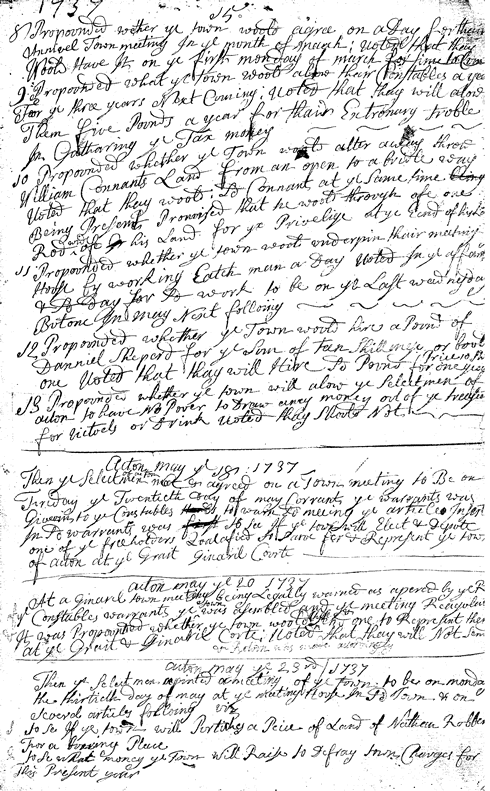 1737
15
8 Propounded wether ye town woold agree on a Day for thair
Annuel Town meeting In ye month of march; Voted that thay
Woold Have It on ye first monday of march for time to Com
9 Propounded what ye Town woold alow thair Constables a year
For ye three years Next Coming: Voted that thay will alow
Them five Pounds a year for thair Extronary troble
In Gatharing ye Tax money
10 Propounded whether ye Town woold alter away three
William Connants Land from an open to a bride way
Voted that thay woold: Sd Connant at ye Same time
Being Present Promised that he woold through of one
Rod of his Land for ye Privelige at ye End of his
11 Propounded whether ye town woold underpin thair meeting
House by working Eatch man a Day Voted In ye affarm
& ye Day for Sd work to be on ye Last wednsday
But one In may Next folloing
12 Propounded whether ye Town would hire a Pound of
Danniel Sheperd for ye Sum of tan Shillings or
one Voted that thay will Hire Sd Pound for one year
13 Propounded whether ye town will alow ye Selectmen of
acton to have No Pover to Draw aney money out of ye treasury
for Victuels or Drink Voted thay Should Not
Acton may ye 18: 1737
Then ye Selectmen met & agreed on a Town meeting to Be on
Fryday ye Twentieth Day of may Corrant ye warrants was
Given to ye Constables to warn Sd meeing ye article Insert
In Sd warrants was to See If ye town will Elect & Depute
one of ye free holders Qualified In Same for & Represent ye town
of acton at ye Grait & Ginaril Corte
acton may ye 20 1737
At a Ginaril town meeting being Legally warned as apered by ye
ye Constables warrants ye town was Esembled and ye meeting Reagular
It was Propounded whether ye town woold Send one to Represent them
at ye Grait & Ginaril Corte; Voted that thay will Not Send
acton may ye 23rd 1737
Then ye Selectmen apinted a meeting of ye Town to be on monday
the thirtieth day of may at ye meeting House in Sd Town & on
Several articles folloing viz
to See If ye town will Purtchas a Peice of Land of Nathan Robbens
For a burying Place
to Se what money ye Town will Raise to Defray town Charges for
this Present year